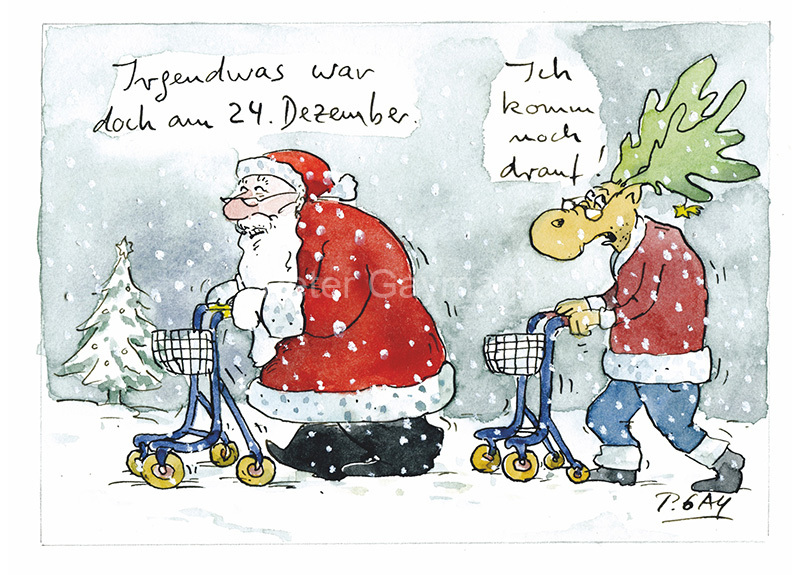 Irgendwas war
doch am 24. Dezember.
Ich
komm
noch
drauf!
Peter Gay
P. GAY